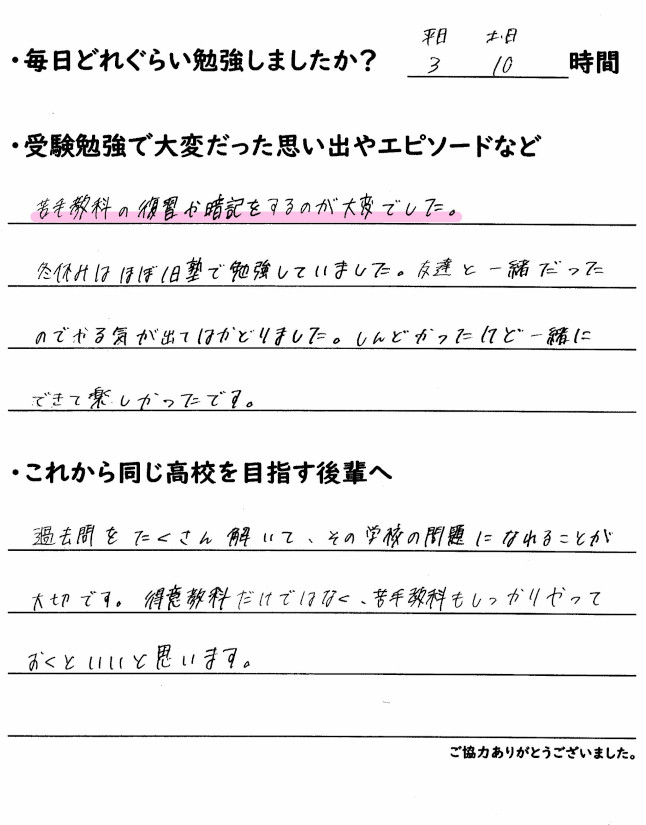 平日 土・日
・毎日どれぐらい勉強しましたか? 3 10 時間
・受験勉強で大変だった思い出やエピソードなど
苦手教科の復習や暗記をするのが大変でした。
冬休みはほぼ1日塾で勉強していました。友達と一緒だった
のでやる気が出てはかどりました。しんどかったけど一緒に
できて楽しかったです。
・これから同じ高校を目指す後輩へ
過去問をたくさん解いて、その学校の問題になれることが
大切です。得意教科だけではなく、苦手教科もしっかりやって
おくといいと思います。
ご協力ありがとうございました。